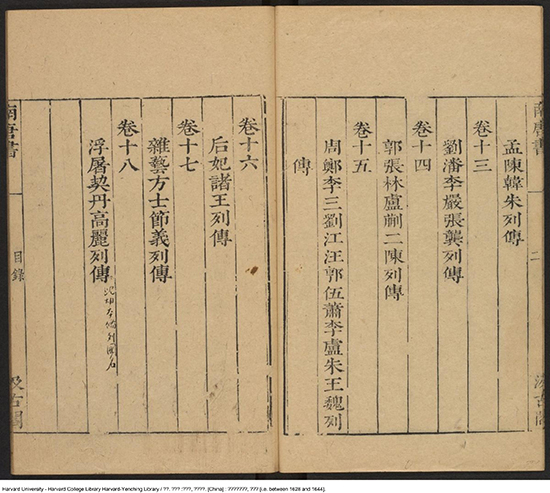 南唐書
二
汲古閣
孟陳韓朱列傳
卷十三
劉潘李嚴張龔列傳
卷十四
郭張林盧蒯二陳列傳
卷十五
周鄭李三劉江汪郭伍蕭李盧朱王魏列
傳
卷十六
后妃諸王列傳
卷十七
雜藝方士節義列傳
卷十八
浮屠契丹高麗列傳
南唐書
目錄
汲古閣
Harvard University - Harvard College Library Harvard-Yenching Library / ??. ???. :???, ????. [China] : ???????, ??? [i.e. between 1628 and 1644].